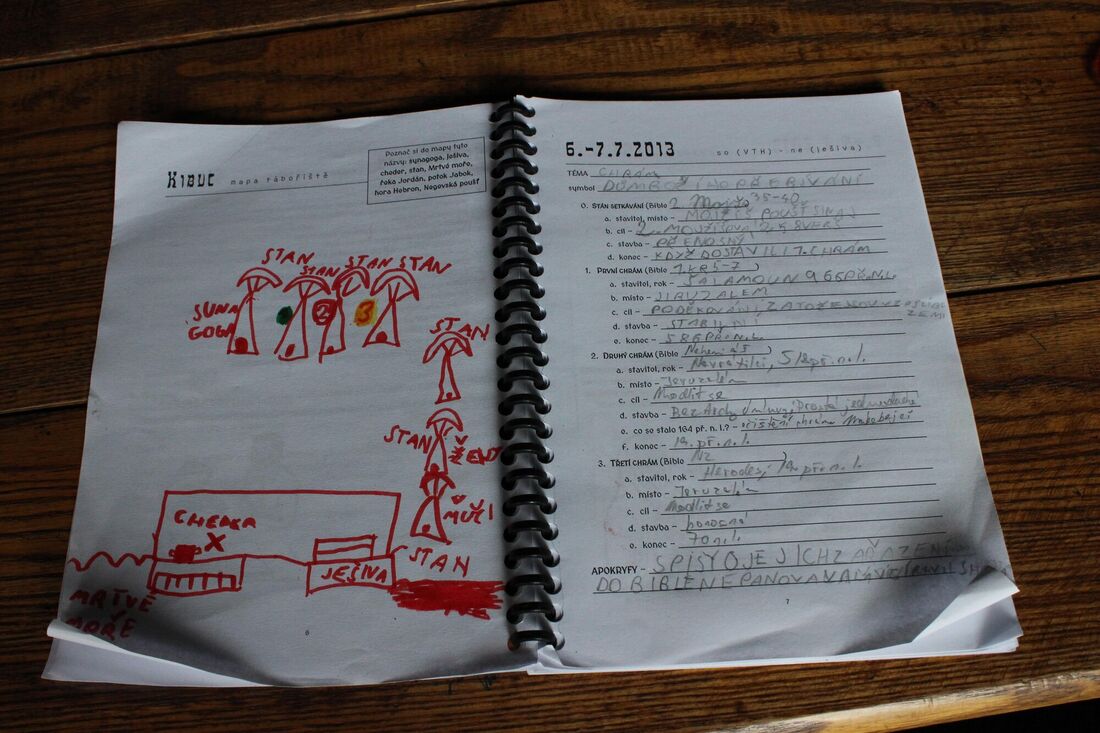 KIBUC mapa tábořiště
Poznač si do mapy tyto
názvy: synagoga, Ješiva,
cheder, stan, Mrtvé moře,
řeka Jordán, potok Jabok,
hora Hebron, Negevská poušť
STAN
STAN
STAN
STAN
SUNA
GOGA
2
3
STAN
STAN
ŽENY
MUŽI
STAN
CHEDER
X
JEŠIVA
MRTVÉ
MOŘE
6
6.-7.7.2013 so (VTH) - ne (Ješiva)
TÉMA CHRÁM
symbol DŮM BOŽÍHO PŘEBÝVÁNÍ
0. STÁN SETKÁVÁNÍ (Bible 2. Mojž 35-40
a. stavitel, místo - MOJŽÍŠ POUŠŤ SINAJ
b. cíl - 2. MOJŽÍŠOVA 25 8 VERŠ
c. stavba - PŘENOSNÝ
d. konec - KDYŽ DOSTAVILI 1. CHRÁM
1. PRVNÍ CHRÁM (Bible 1 KR 5-7)
a. stavitel, rok - ŠALAMOUN 966 PŘ. N. L.
b. místo - JERUZALEM
c. cíl - PODĚKOVÁNÍ ZA
d. stavba - STABILNÍ
e. konec - 586 PŘ. N. L.
2. DRUHÝ CHRÁM (Bible Nehemiáš)
a. stavitel, rok - Navrátilci, př. n. l.
b. místo - Jeruzalém
c. cíl - Modlit se
d. stavba - Bez Archy úmluvy, Prostá,
e. co se stalo 164 př. n. l.? - očištění chrámu Makabejci
f. konec - 19. př. n. l.
3. TŘETÍ CHRÁM (Bible NZ)
a. stavitel, rok - Herodes, 19 př. n. l.
b. místo - Jeruzalém
c. cíl - Modlit se
d. stavba - honosná
e. konec - 70 n. l.
APOKRYFY - SPISY O JEJICHŽ ZAŘAZENÍ
DO BIBLE NEPANOVALA
7